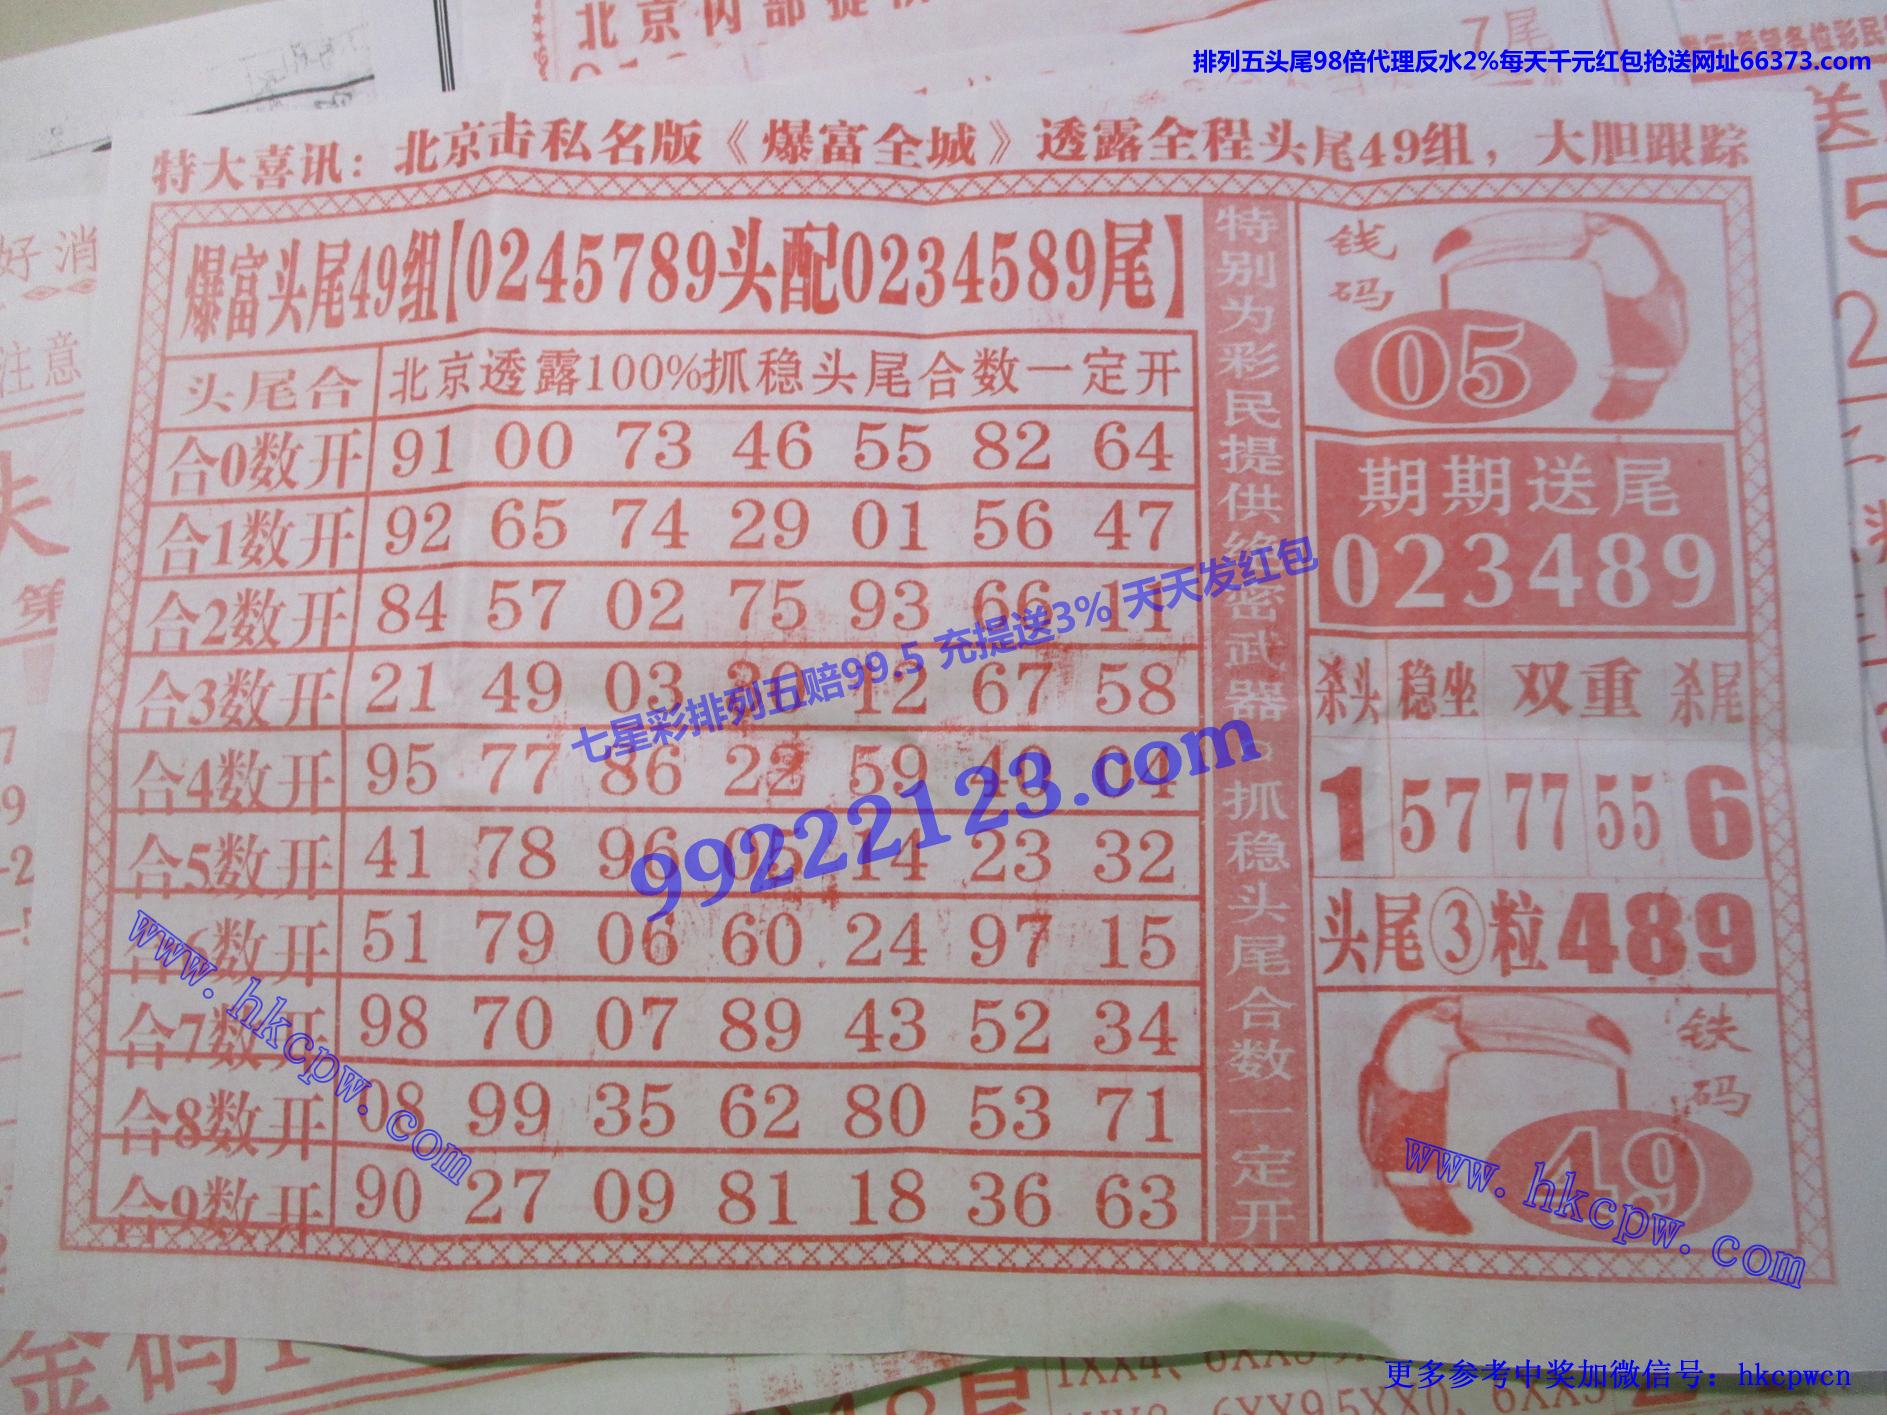 北京内部提供
7尾
排列五头尾98倍代理反水2%每天千元红包抢送网址66373.com
特大喜讯：北京击私名版《爆富全城》透露全程头尾49组，大胆跟踪
爆富头尾49组【0245789头配0234589尾】
头尾合 北京透露100%抓稳头尾合数一定开
合0数开 91 00 73 46 55 82 64
合1数开 92 65 74 29 01 56 47
合2数开 84 57 02 75 93 66 11
合3数开 21 49 03 30 12 67 58
合4数开 95 77 86 22 59 40 04
合5数开 41 78 96 05 14 23 32
合6数开 51 79 06 60 24 97 15
合7数开 98 70 07 89 43 52 34
合8数开 08 99 35 62 80 53 71
合9数开 90 27 09 81 18 36 63
特别为彩民提供绝密武器。抓稳头尾合数一定开
钱码
05
期期送尾
023489
杀头 稳坐 双重 杀尾
1 57 77 55 6
头尾③粒489
铁码
49
七星彩排列五赔99.5 充提送3% 天天发红包
99222123.com
www.hkcpw.com
www.hkcpw.com
好消
注意
金码
更多参考中奖加微信号：hkcpwcn